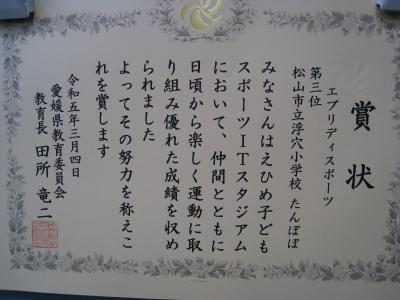 賞状
エブリディスポーツ
第三位
松山市立浮穴小学校 たんぽぽ
みなさんはえひめ子ども
スポーツITスタジアム
において、仲間とともに
日頃から楽しく運動に取
り組み優れた成績を収め
られました
よってその努力を称えこ
れを賞します
令和五年三月四日
愛媛県教育委員会
教育長 田所竜二